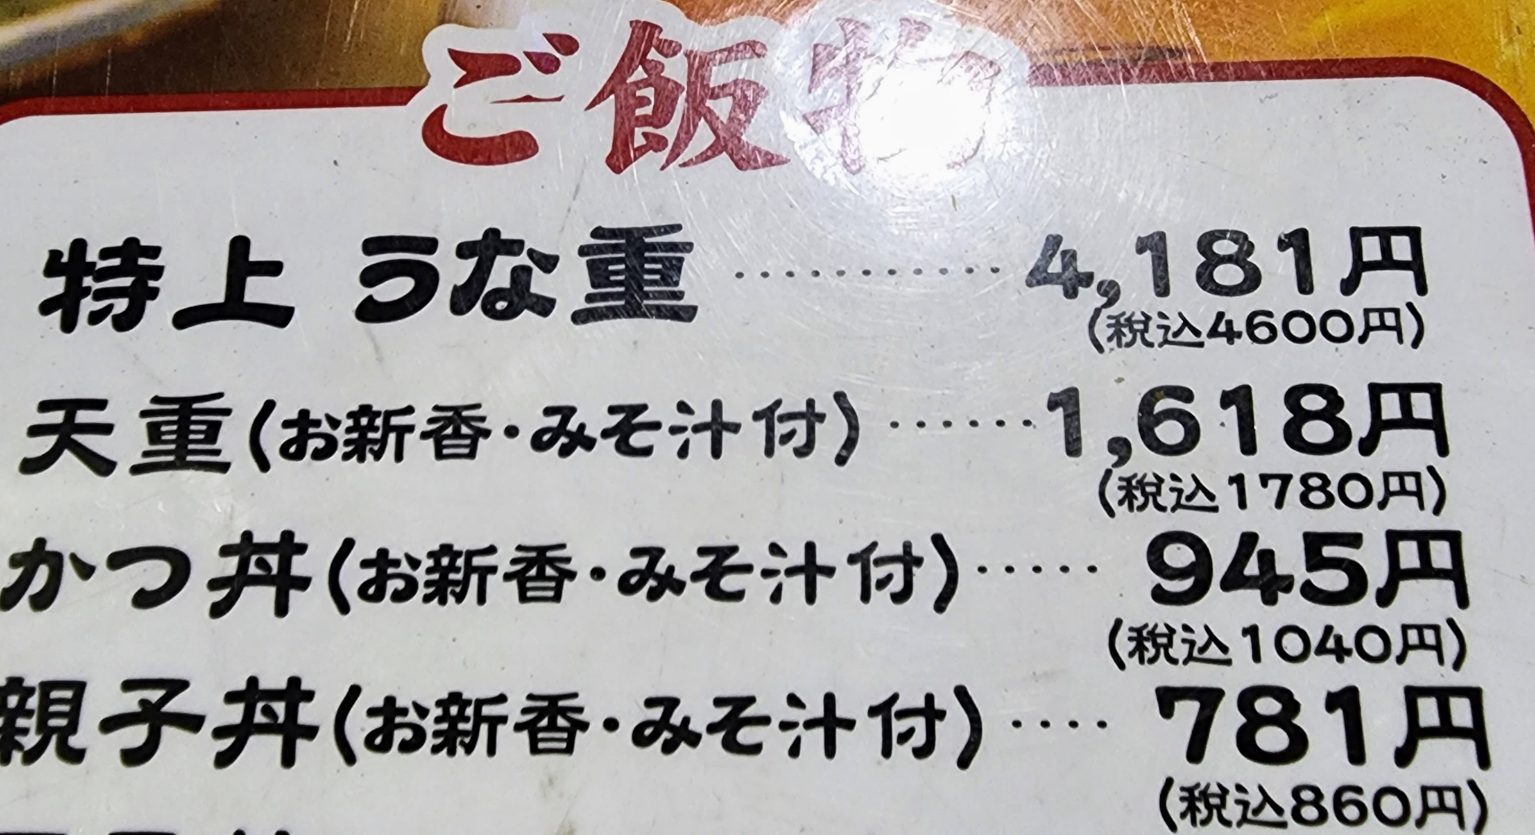 ご飯物
特上 うな重 ………… 4,181円
(税込4600円)
天重(お新香・みそ汁付) …… 1,618円
(税込1780円)
かつ丼(お新香・みそ汁付) …… 945円
(税込1040円)
親子丼(お新香・みそ汁付) …… 781円
(税込860円)